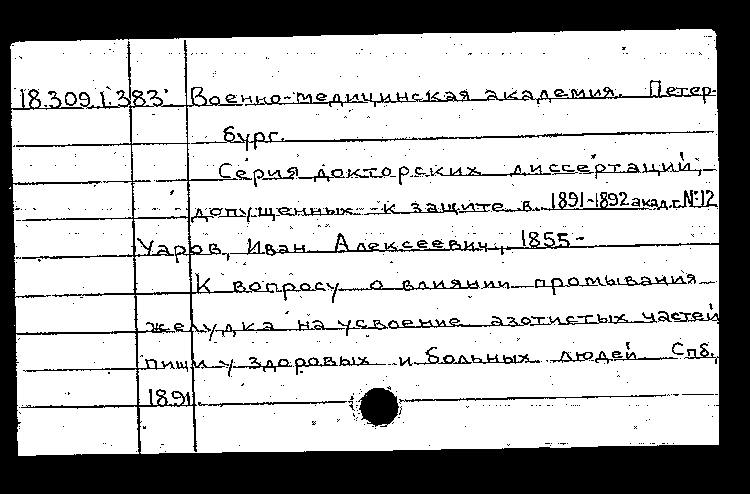 18.309.1.383. Военно-медицинская академия. Петер-
бург.
Серия докторских диссертаций,
допущенных к защите в 1891-1892 акад.г. №12
Уаров, Иван Алексеевич, 1855-
К вопросу о влиянии промывания
желудка на усвоение азотистых частей
пищи у здоровых и больных людей Спб.,
1891.